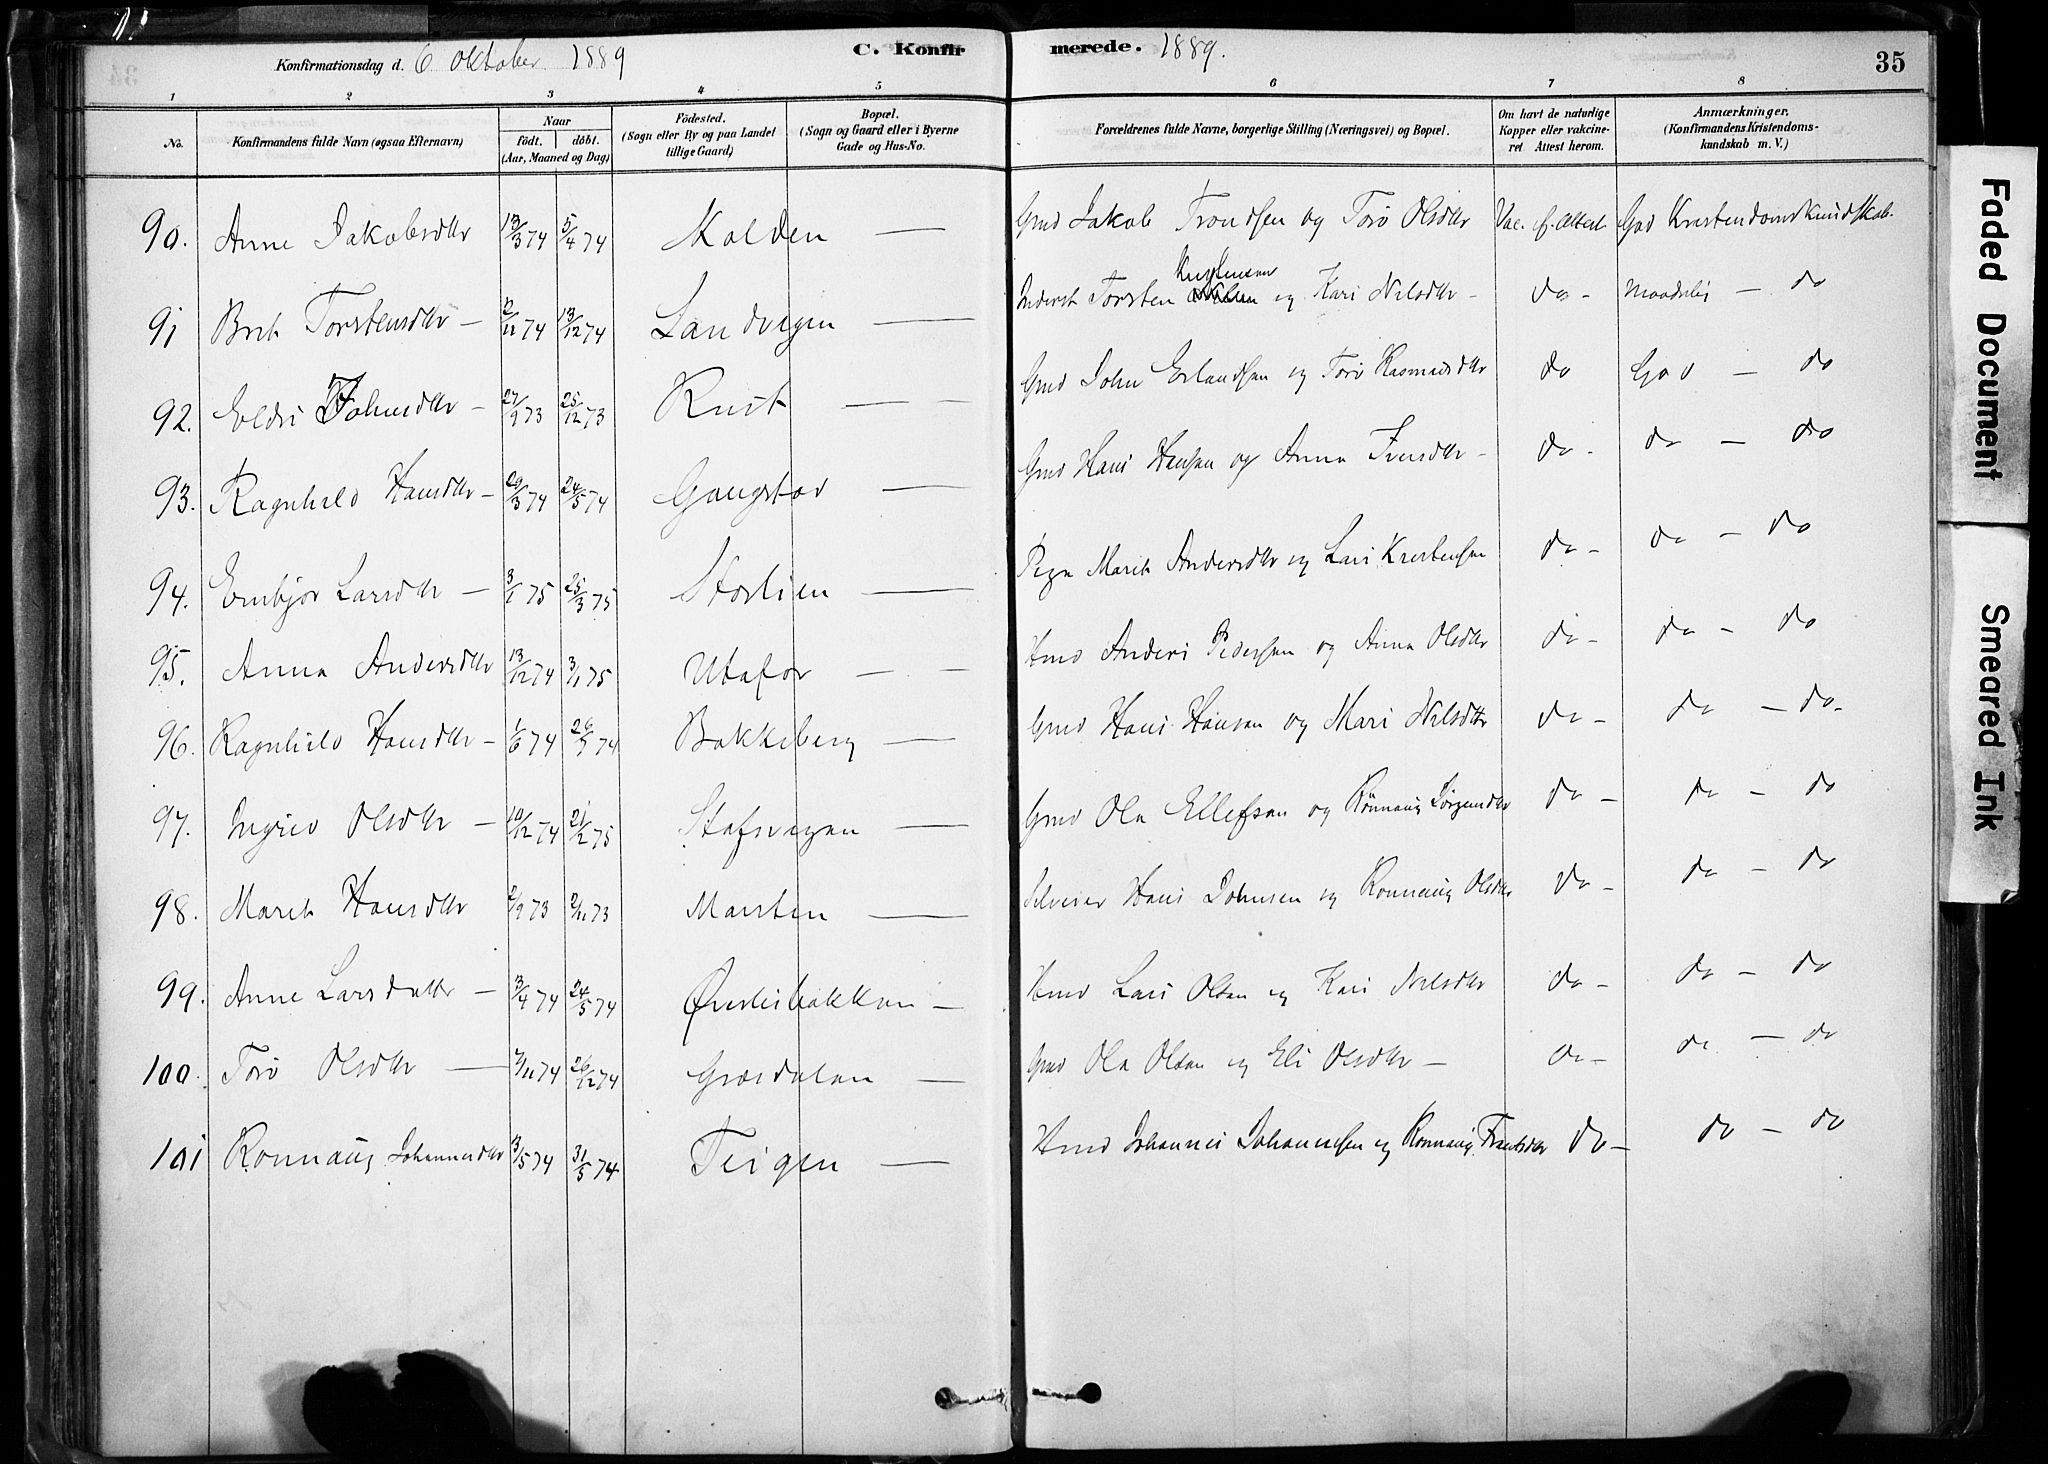 Konfirmationsdag d. 6 Oktober 1889 C. Konfirmerede. 1889. 35
1 2 3 4 5 6 7 8
No. Konfirmandens fulde Navn (ogsaa Efternavn) Naar födt. döbt. (Aar, Maaned og Dag) Födested. (Sogn eller By og paa Landet tillige Gaard) Bopæl. (Sogn og Gaard eller i Byerne Gade og Hus-No. Forældrenes fulde Navne, borgerlige Stilling (Næringsvei) og Bopæl. Om havt de naturlige Kopper eller vakcineret Attest herom. Anmærkninger. (Konfirmandens Kristendomskundskab m. V.)
90. Anne Jakobsdtr 13/3 74 5/4 74 Kolden — Gmd Jakob Trondsen og Torö Olsdtr Vac. f. Attest God Kristendomskundskab.
91 Brit Torstensdtr — 2/11 74 13/12 74 Sandvigen — Inderst Torsten og Kari Nilsdtr — do - Maadelig — do
92. Eldri Johnsdtr — 27/9 73 25/12 73 Rust — Gmd John Erlandsen og Torö Rasmusdtr do God — do
93. Ragnhild Hansdtr — 29/3 74 24/5 74 Gangstad — Gmd Hans Hansen og Anna Iversdtr — do - do — do
94. Embjör Larsdtr — 3/1 75 25/3 75 Storlien — Pige Marit Andersdtr og Lars Kristensen do - do — do
95. Anna Andersdtr 13/12 74 3/1 75 Utafor — Hmd Anders Pedersen og Anna Olsdtr do - do — do
96. Ragnhild Hansdtr — 1/6 74 26/7 74 Bakkeberg — Gmd Hans Hansen og Mari Nilsdtr do - do — do -
97. Ingrid Olsdtr — 10/12 74 21/2 75 Stafsvegen — Gmd Ola Ellefsen og Rönnaug Jörgensdtr do - do — do
98. Marit Hansdtr 2/9 73 2/11 73 Marsten — Selveier Hans Johnsen og Ronnaug Olsdtr do - do — do
99. Anne Larsdatter — 13/4 74 24/5 74 Øverlibakken — Hmd Lars Olsen og Kari Nilsdtr do - do — do
100. Torö Olsdtr — 7/11 74 26/12 74 Græsdalen — Gmd Ola Olsen og Eli Olsdtr — do - do — do
101 Ronnaug Johannesdtr 13/5 74 31/5 74 Teigen — Hmd Johannes Johannessen og Ronnaug Frantsdtr do - do — do
Faded Document
Smeared Ink